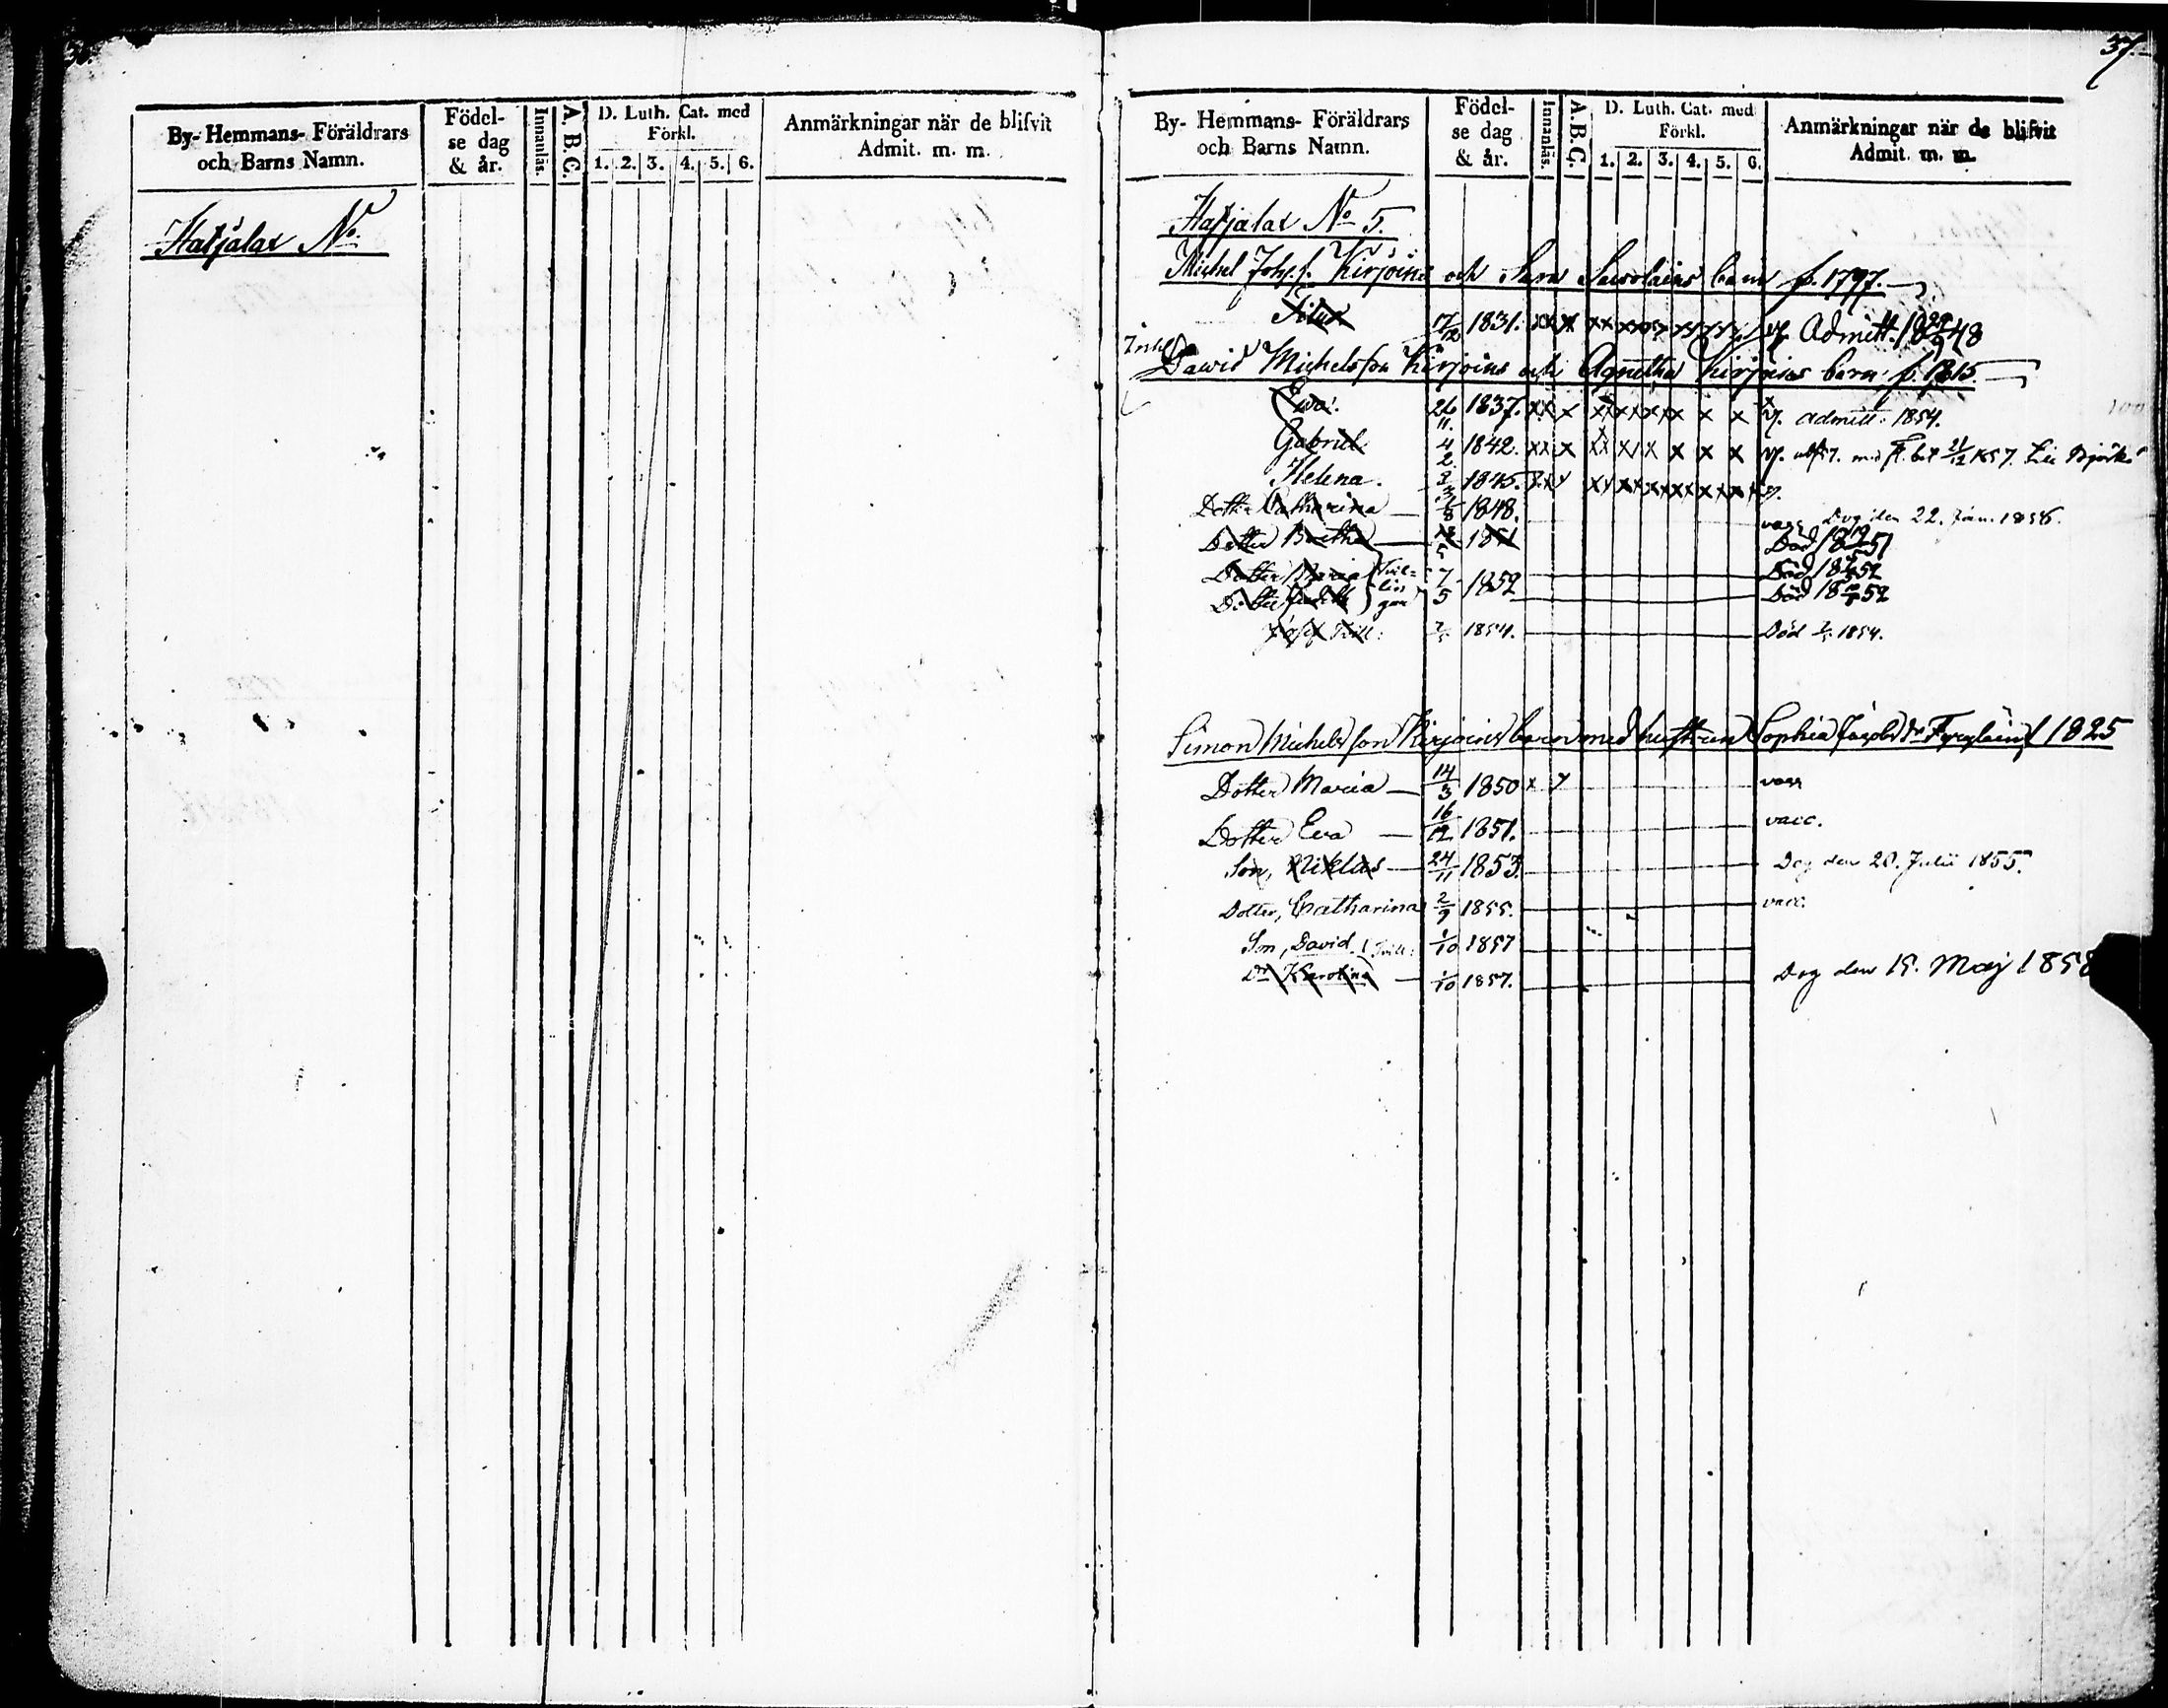 36.
By- Hemmans- Föräldrars och Barns Namn.
Födel-se dag & år.
Innanläs.
A. B. C.
D. Luth. Cat. med Förkl.
1. 2. 3. 4. 5. 6.
Anmärkningar när de blifvit Admit. m. m.
Hatjalax No.
37.
By- Hemmans- Föräldrars och Barns Namn.
Födel-se dag & år.
Innanläs.
A. B. C.
D. Luth. Cat. med Förkl.
1. 2. 3. 4. 5. 6.
Anmärkningar när de blifvit Admit. m. m.
Hatjalax No 5.
Michel Joh.s. Kirjoins och Sara Savolains barn f. 1797.
17/12 1831. Admitt. 48
David Michelsson Kirjoins och Agnetha Kirjoins barn f. 1815.
Eva. 26/11 1837. admitt. 1854.
Gabriel 4/2 1842. 1857. Björkö
Helena. 1845.
Dotter Catharina 1/8 1848. vacc. Dog den 22. Jan. 1856.
Dotter 1851 Död 51
Dotter Maria Tvil-lin-gar 7/5 1852 Död 52
Dotter Död 52
Josef 1854. Död 1854.
Simon Michelsson Kirjoins barn med hustrun Sophia Jacobs dr f 1825
Dotter Maria 14/3 1850 x vacc
Dotter Eva 16/12 1851. vacc.
Son, Niklas 24/11 1853. Dog den 20. Julii 1855.
Dotter, Catharina 2/9 1855. vacc.
Son, David Tvill. 1/10 1857
Dr Karolina 1/10 1857. Dog den 15. Maj 1858